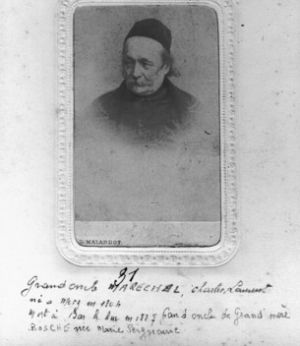 G. MALARDOT
31
Grand oncle MARECHAL, Charles Laurent
né à Metz en 1804
Mort à Bar le duc en 1887 Grand oncle de Grand mère
BOSCHE née Marie